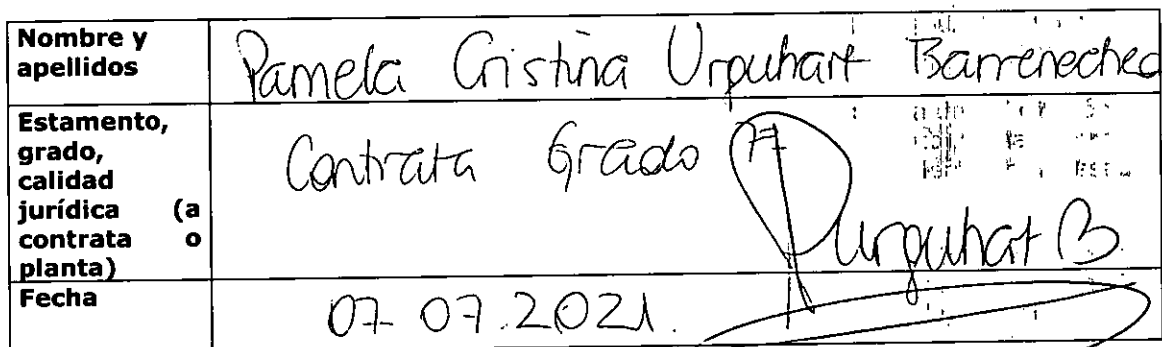 Nombre y
apellidos
Pamela Cristina Urquhart Barrenechea
Estamento,
grado,
calidad
jurídica (a
contrata o
planta)
Contrata Grado 7
PUrquhart B
Fecha
07-07.2021.